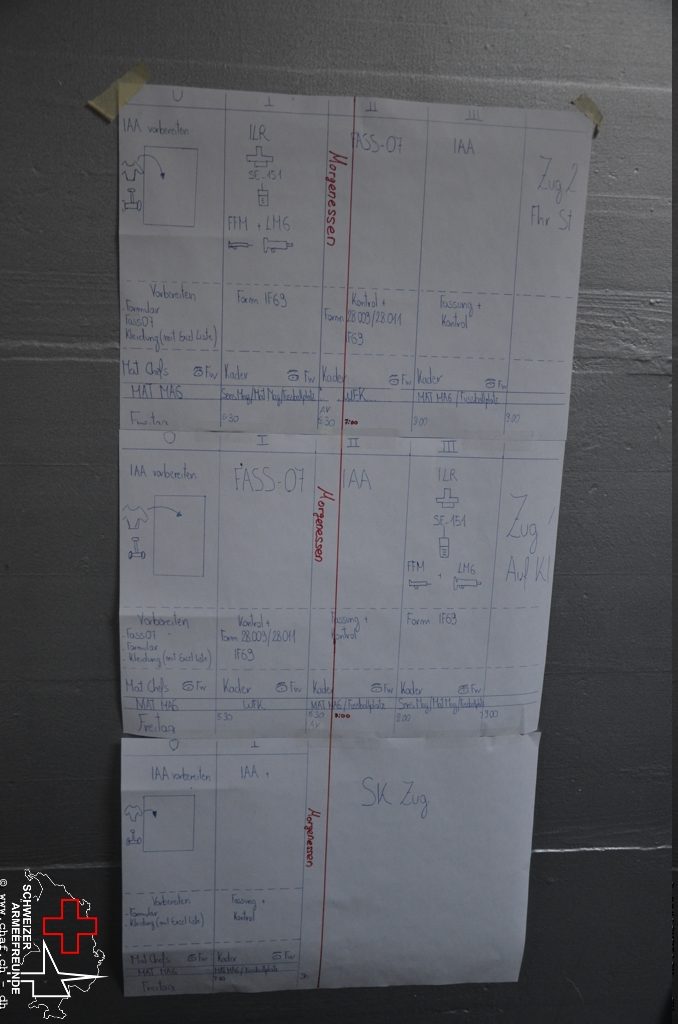 0 I II III
IAA vorbereiten
ILR
SE-151
FFM + LMG
Morgenessen
FASS-07
IAA
Zug 2
Fhr St
Vorbereiten
- Formular
- Fass 07
- Kleidung (mit Excel Liste)
Form IF69
Kontrol +
Form 28.009/28.011
IF69
Fassung +
Kontrol
Mat Chefs Fw Kader Fw Kader Fw Kader Fw
MAT MAG Sens.Mag/Mat Mag/Fussballplatz WFK MAT MAG / Fussballplatz
Freitag 5:30 AV 7:00 8:00 9:00
0 I II III
IAA vorbereiten
FASS-07
Morgenessen
IAA
ILR
SE-151
FFM + LMG
Zug 1
Auf Kl
Vorbereiten
- Fass 07
- Formular
- Kleidung (mit Excel Liste)
Kontrol +
Form 28.009/28.011
IF69
Fassung +
Kontrol
Form IF69
Mat Chefs Fw Kader Fw Kader Fw Kader Fw
MAT MAG WFK MAT MAG / Fussballplatz Sens.Mag/Mat Mag/Fussballplatz
Freitag 5:30 AV 7:00 8:00 9:00
0 I
IAA vorbereiten
IAA +
Morgenessen
SK Zug
Vorbereiten
- Formular
- Kleidung (mit Excel Liste)
Fassung +
Kontrol
Mat Chefs Fw Kader Fw
MAT MAG MAT MAG / Fussballplatz
Freitag
SCHWEIZER
ARMEEFREUNDE
© www.chaf.ch - dh